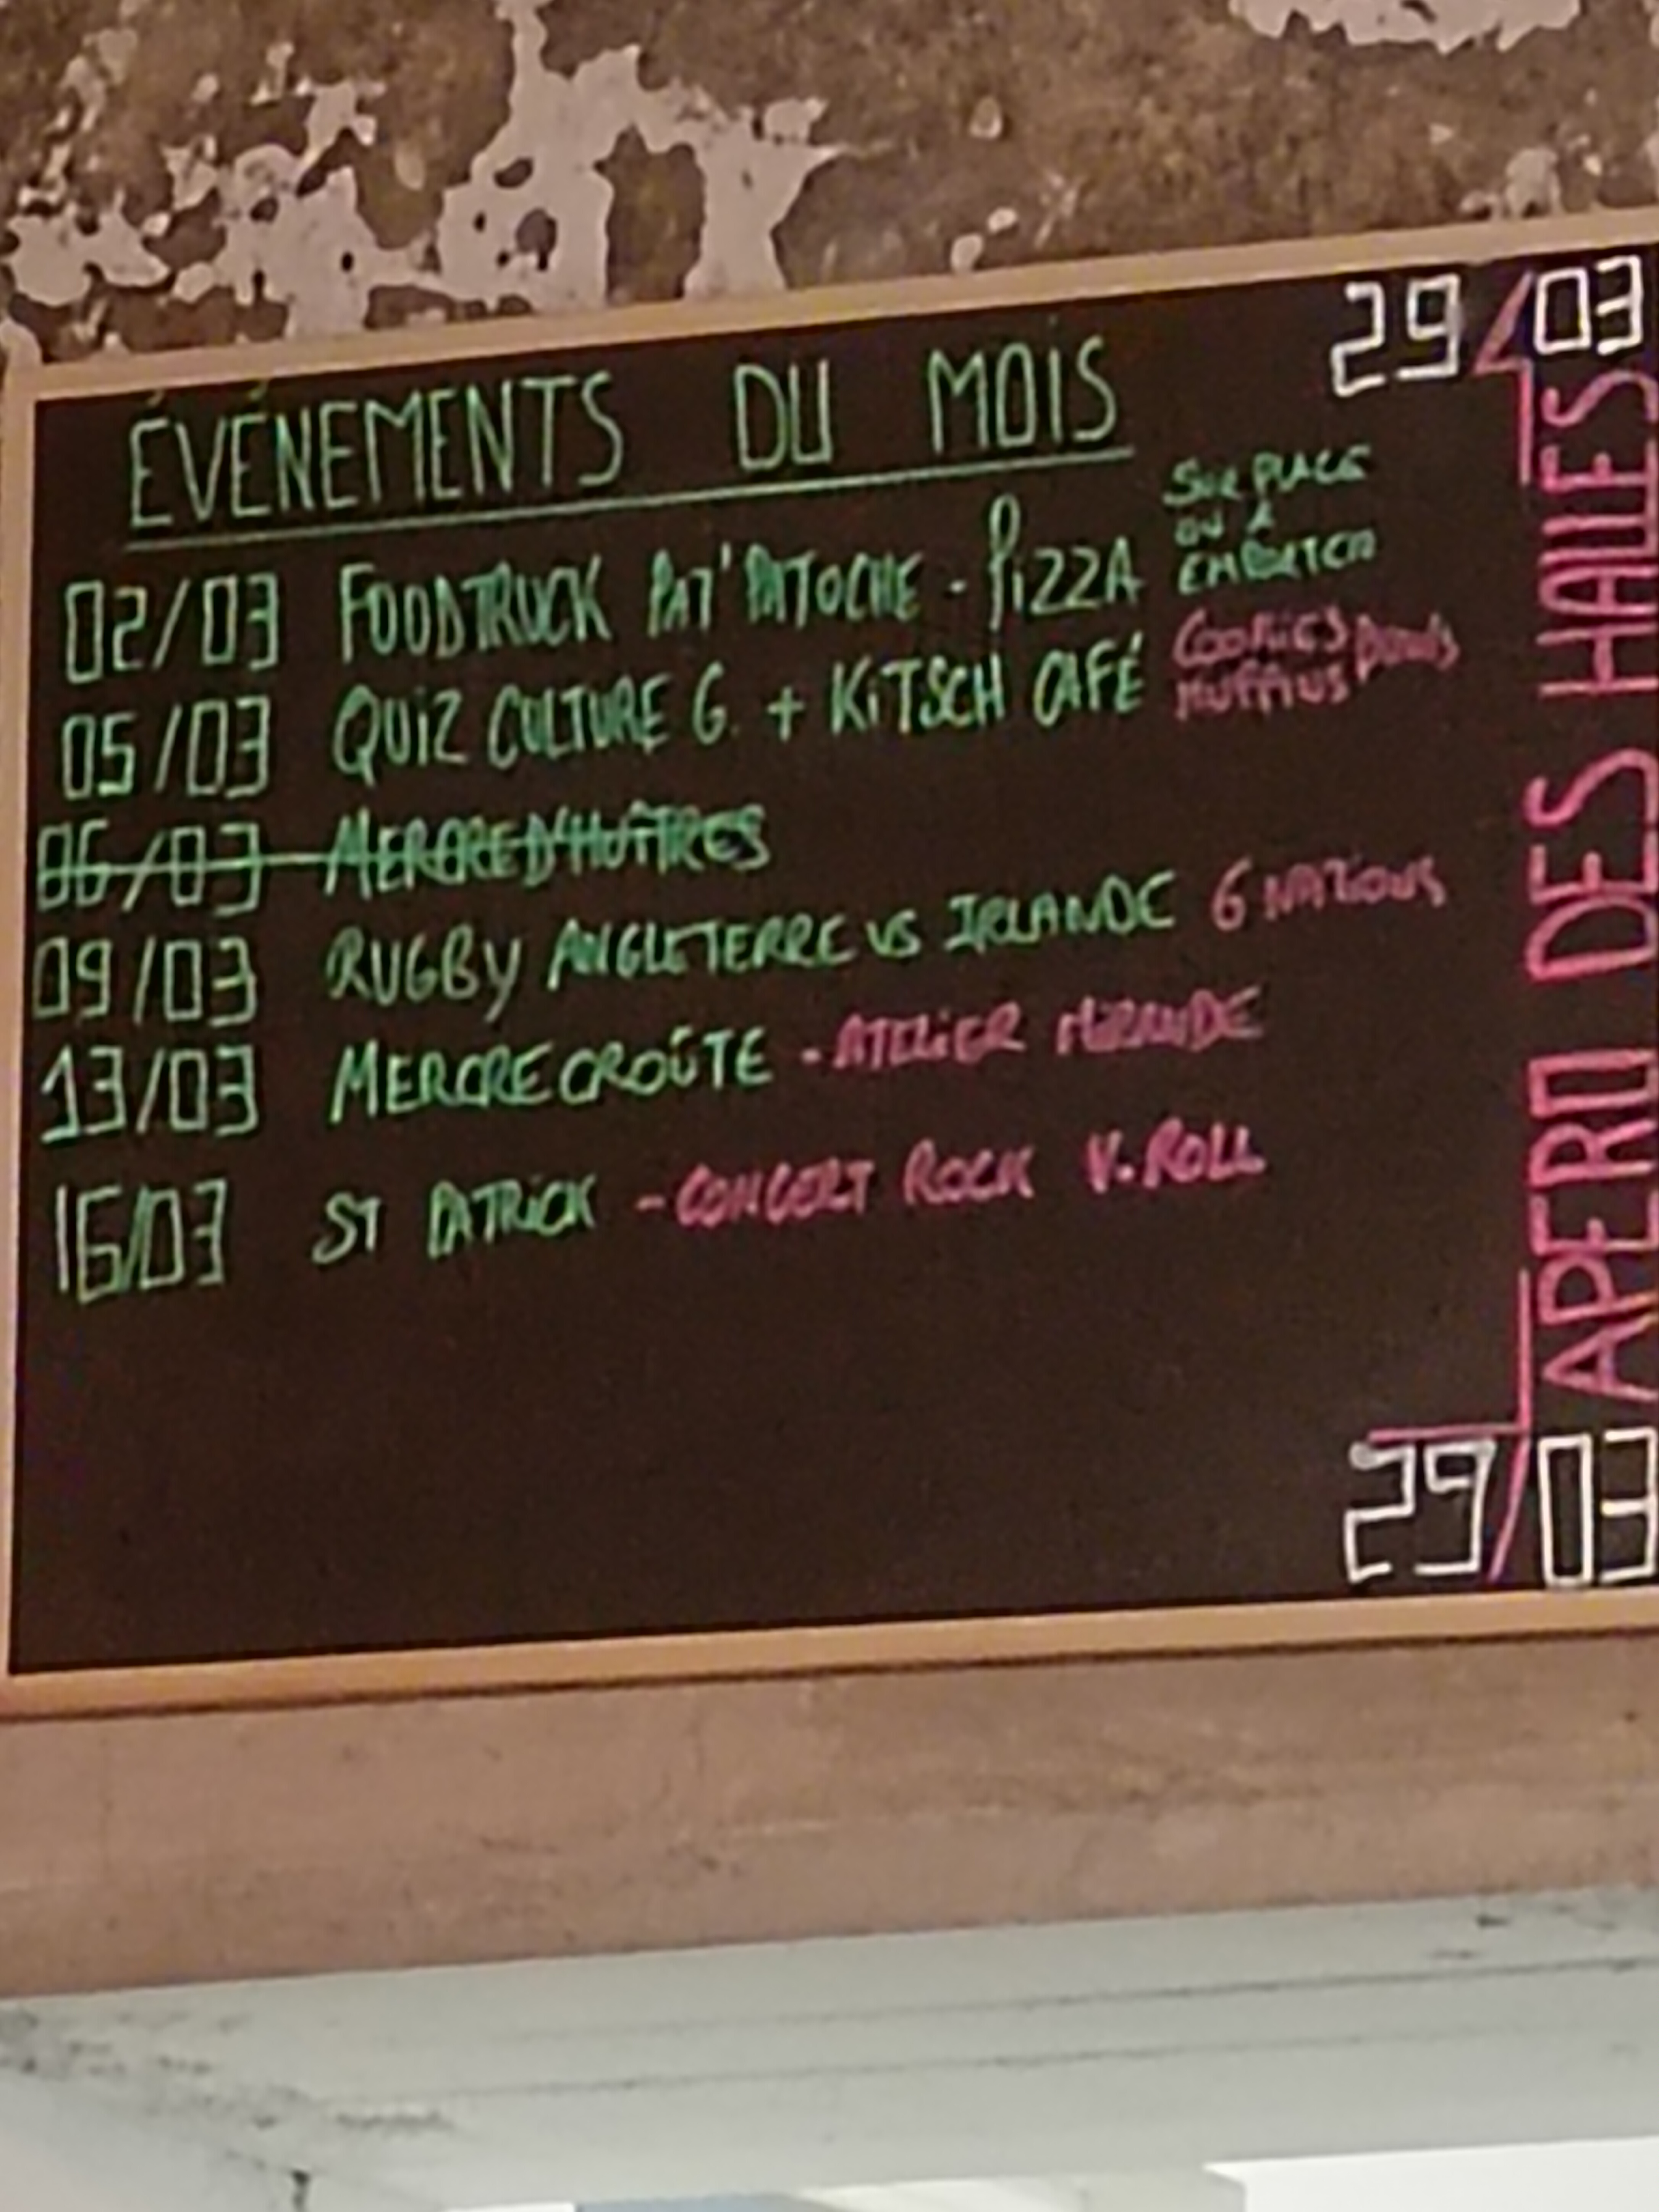 ÉVÉNEMENTS DU MOIS
02/03 FOODTRUCK PAT'PATOCHE - PIZZA
SUR PLACE
OU À
EMPORTER
05/03 QUIZ CULTURE G. + KITSCH CAFÉ
COOKIES DONUTS
MUFFINS
06/03 MERCRED'HUÎTRES
09/03 RUGBY ANGLETERRE VS IRLANDE 6 NATIONS
13/03 MERCRECROÛTE - ATELIER
16/03 ST PATRICK - CONCERT ROCK V. ROLL
29/03
APERO DES HALLES
29/03